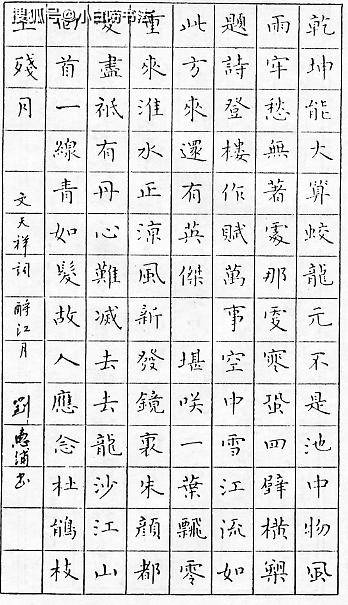 乾坤能大算蛟龍元不是池中物風
雨牢愁無著處那更寒蛩四壁橫槊
題詩登樓作賦萬事空中雪江流如
此方來還有英傑 堪咲一葉飄零
重來淮水正涼風新發鏡裏朱顏都
變盡祇有丹心難滅去去龍沙江山
回首一線青如髮故人應念杜鵑枝
上殘月
文天祥詞 酹江月